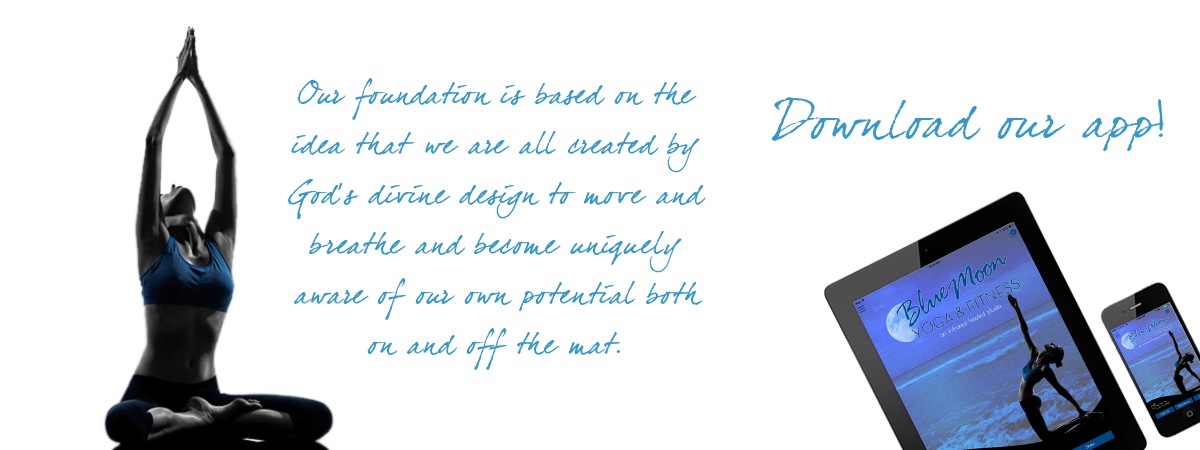 Our foundation is based on the
idea that we are all created by
God's divine design to move and
breathe and become uniquely
aware of our own potential both
on and off the mat.
Download our app!
Blue Moon
YOGA & FITNESS
an infrared heated studio
Blue Moon